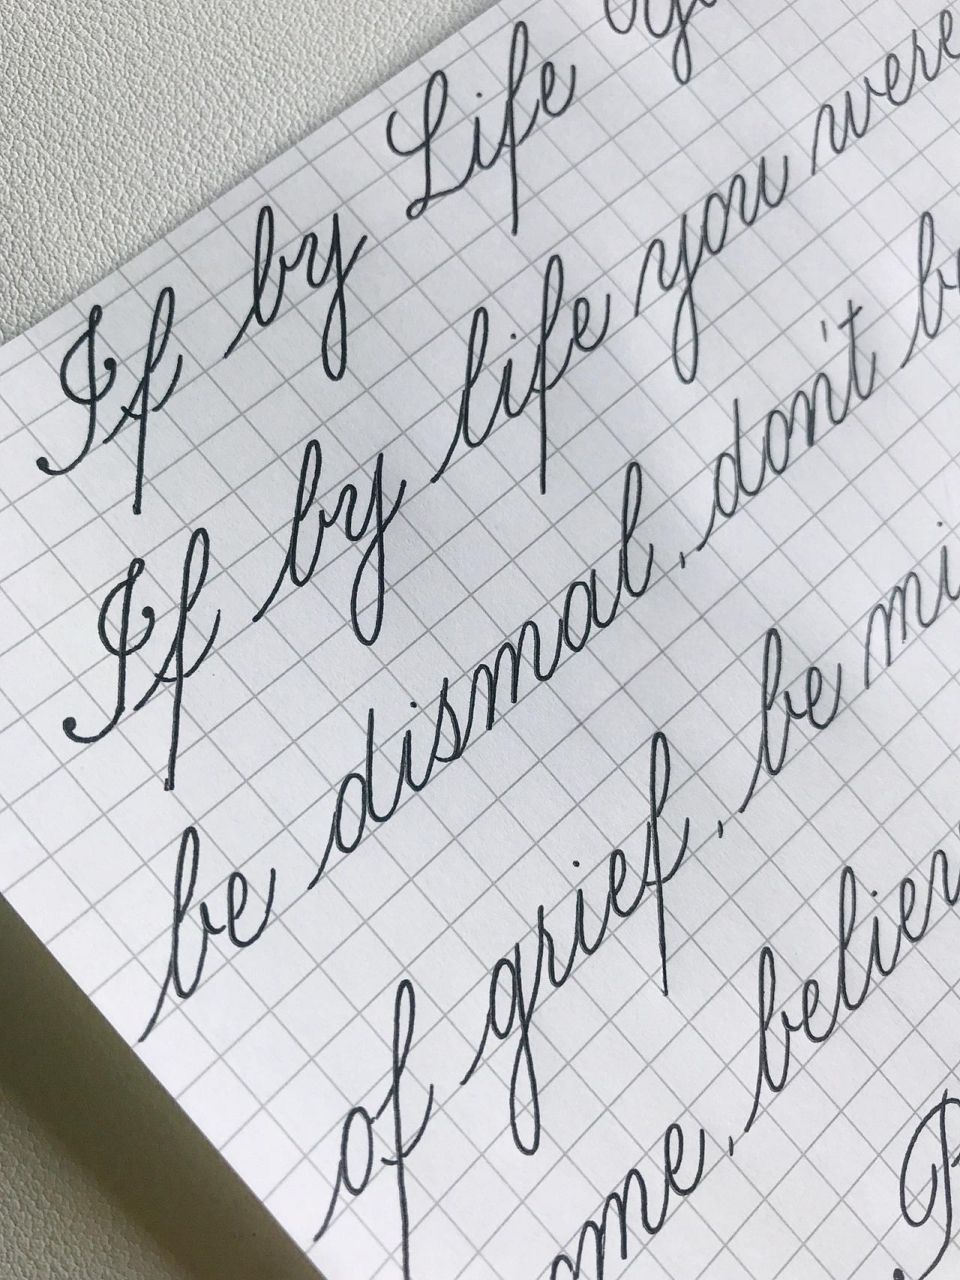 If by Life
If by life you were
be dismal, don't
of grief, be
me,